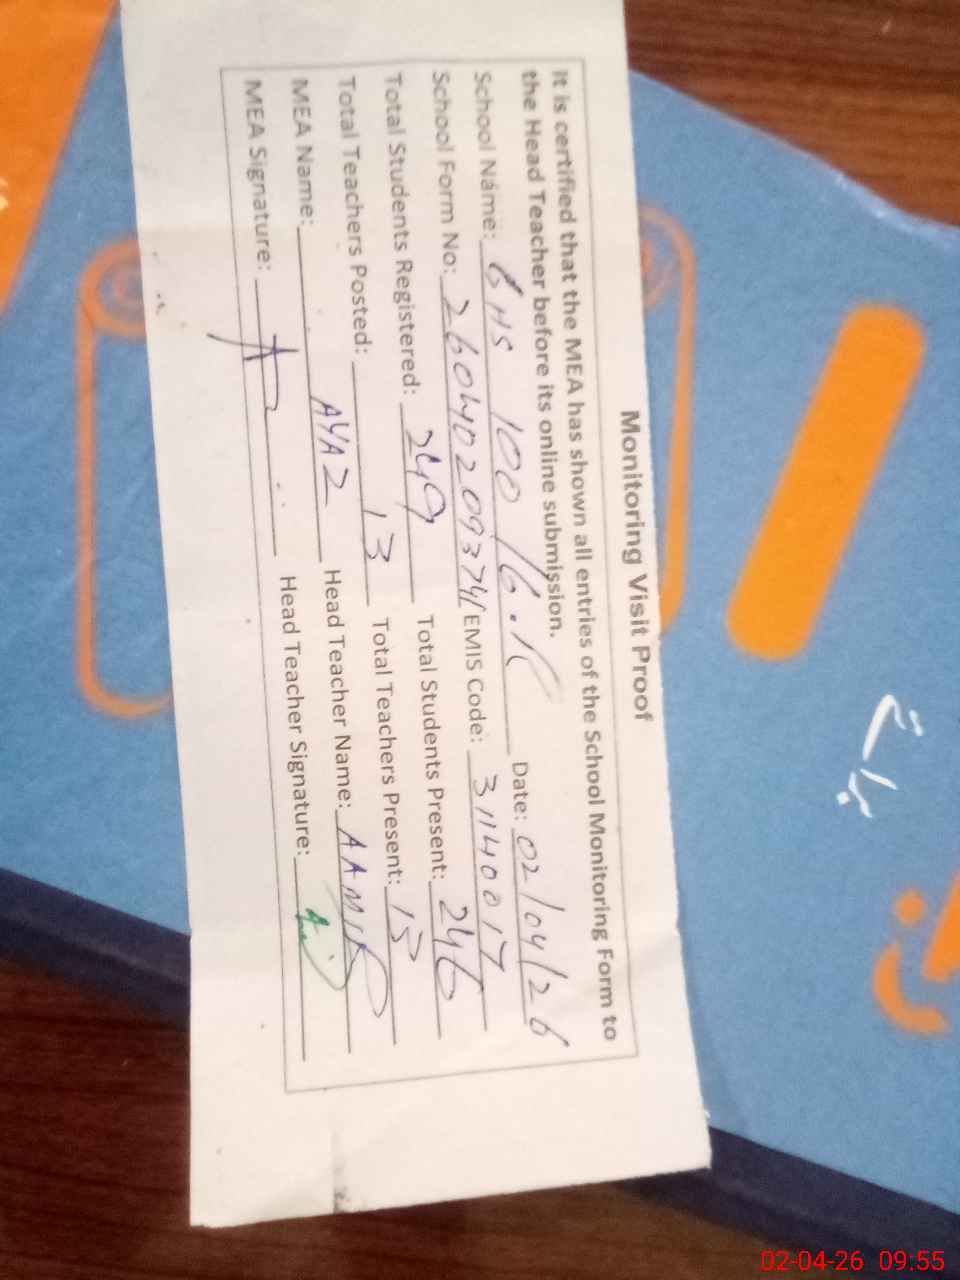 Monitoring Visit Proof
It is certified that the MEA has shown all entries of the School Monitoring Form to
the Head Teacher before its online submission.
School Name: GHS 100/6.R Date: 02/04/26
School Form No: 260402093741 EMIS Code: 31140017
Total Students Registered: 249 Total Students Present: 246
Total Teachers Posted: 13 Total Teachers Present: 13
MEA Name: AYAZ Head Teacher Name: AAMIR
MEA Signature: Head Teacher Signature:
02-04-26 09:55